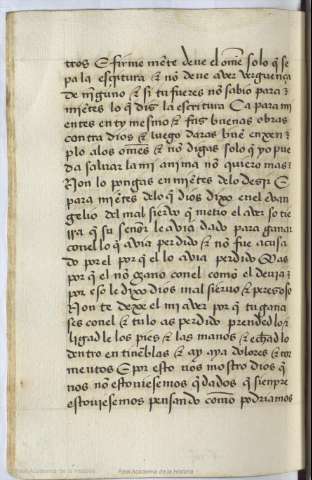 tros E firme mẽte deve el om̃e solo q̃ se
pa la escptura ⁊ nõ deve aver verguença
de nĩguno ⁊ si tu fueres nõ sabio para
miẽtes lo q̃ dis la escritura Ca para mi
entes en ty mesmo ⁊ fas buenas obras
contra dios ⁊ luego daras buẽ enxen
plo alos om̃es ⁊ nõ digas solo q̃ yo pue
da salvar la mi anima nõ quiero mas
Non lo pongas en miẽtes delo desir E
para miẽtes delo q̃ dios dixo enel evan
gelio del mal siervo q̃ metio el aver so tie
rra q̃ su señor le avia dado para ganar
conel lo q̃ avia perdido ⁊ nõ fue acusa
do por el por q̃ el lo avia perdido Mas
por q̃ el nõ gano conel como el devia ⁊
por eso le dixo dios mal siervo ⁊ peresoso
Non te dexe el mi aver por q̃ tu gana
ses conel ⁊ tu lo as perdido prended lo ⁊
ligad le los pies ⁊ las manos ⁊ echad lo
dentro en tiniebras ⁊ ay aya dolores ⁊ tor
mẽtos E por esto vos mostro dios q̃
nos nõ estoviesemos q̃dados q̃ sienpre
estoviesemos pensando como podriamos
Real Academia de la Historia
Real Academia de la Historia